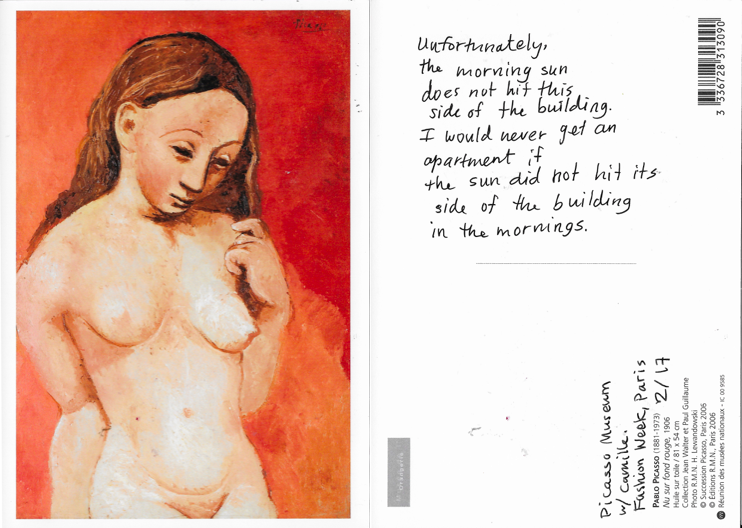 Unfortunately,
the morning sun
does not hit this
side of the building.
I would never get an
apartment if
the sun did not hit its
side of the building
in the mornings.
3 336728 313090
Picasso Museum
w/ Camille.
Fashion Week, Paris
2/17
PABLO PICASSO (1881-1973)
Nu sur fond rouge, 1906
Huile sur toile / 81 x 54 cm
Collection Jean Walter et Paul Guillaume
Photo R.M.N. H. Lewandowski
© Succession Picasso, Paris 2006
© Editions R.M.N., Paris 2006
Réunion des musées nationaux - IC 00 9585